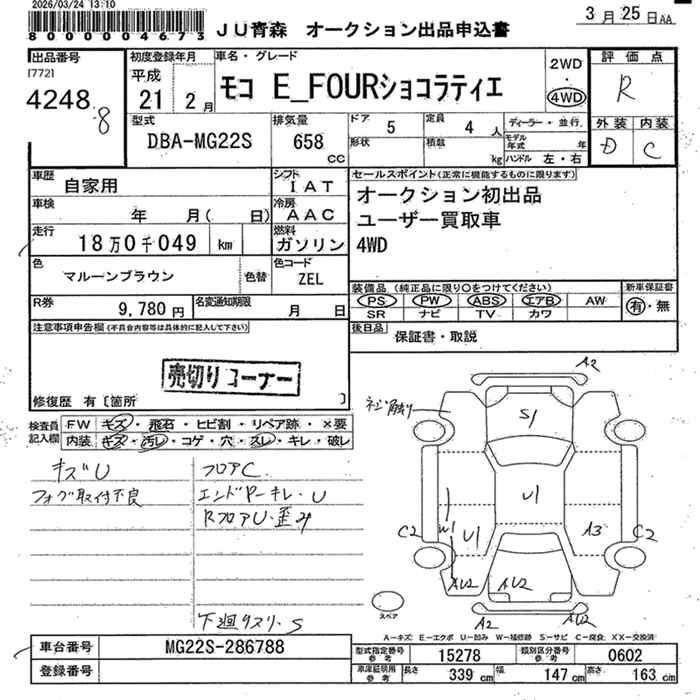 2026/03/24 13:10
800000004673
JU青森 オークション出品申込書
3月25日AA
出品番号
[772]
4248
8
初度登録年月
平成
21 2月
車名・グレード
モコ E_FOURショコラティエ
2WD
・
4WD
評価点
R
型式
DBA-MG22S
排気量
658
cc
ドア 5
定員 4 人
形状
積載 kg
ディーラー・並行
モデル年式 年
ハンドル 左・右
外装 内装
D C
車歴
自家用
シフト
IAT
セールスポイント(正常に機能するものに限ります)
オークション初出品
ユーザー買取車
4WD
車検
年 月( 日)
冷房
AAC
走行
18万0千049 km
燃料
ガソリン
色
マルーンブラウン
色替
色コード
ZEL
装備品(純正品に限り○をつけてください)
新車保証書
PS PW ABS エアB AW
SR ナビ TV カワ
有・無
R券
9,780円
名変通知期限
月 日
後日品
保証書・取説
注意事項申告欄(不具合内容等は具体的に記入して下さい)
売切りコーナー
修復歴 有〔箇所 〕
検査員記入欄
FW キズ・飛石・ヒビ割・リペア跡・×要
内装 キズ・汚レ・コゲ・穴・スレ・キレ・破レ
キズU
フォグ取付不良
フロアC
エンドPーキレ・U
RフロアU・歪み
下廻りスリ・S
A2
S1
U1
W1
U1
A3
C2
C2
AU2
AU2
A2
AU2
スペア
A-キズ E-エクボ U-凹み W-補修跡 S-サビ C-腐食 XX-交換済
車台番号
MG22S-286788
登録番号
型式指定番号
参考
15278
類別区分番号
参考
0602
車庫証明用
参考
長さ 339 cm 幅 147 cm 高さ 163 cm